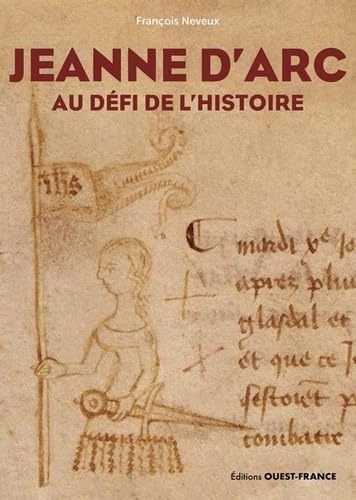 François Neveux
JEANNE D'ARC
AU DÉFI DE L'HISTOIRE
ihs
mardi xe jo
aprez plu
glasdal et
et que ce J
sestoiẽt p
combatre
Éditions OUEST-FRANCE